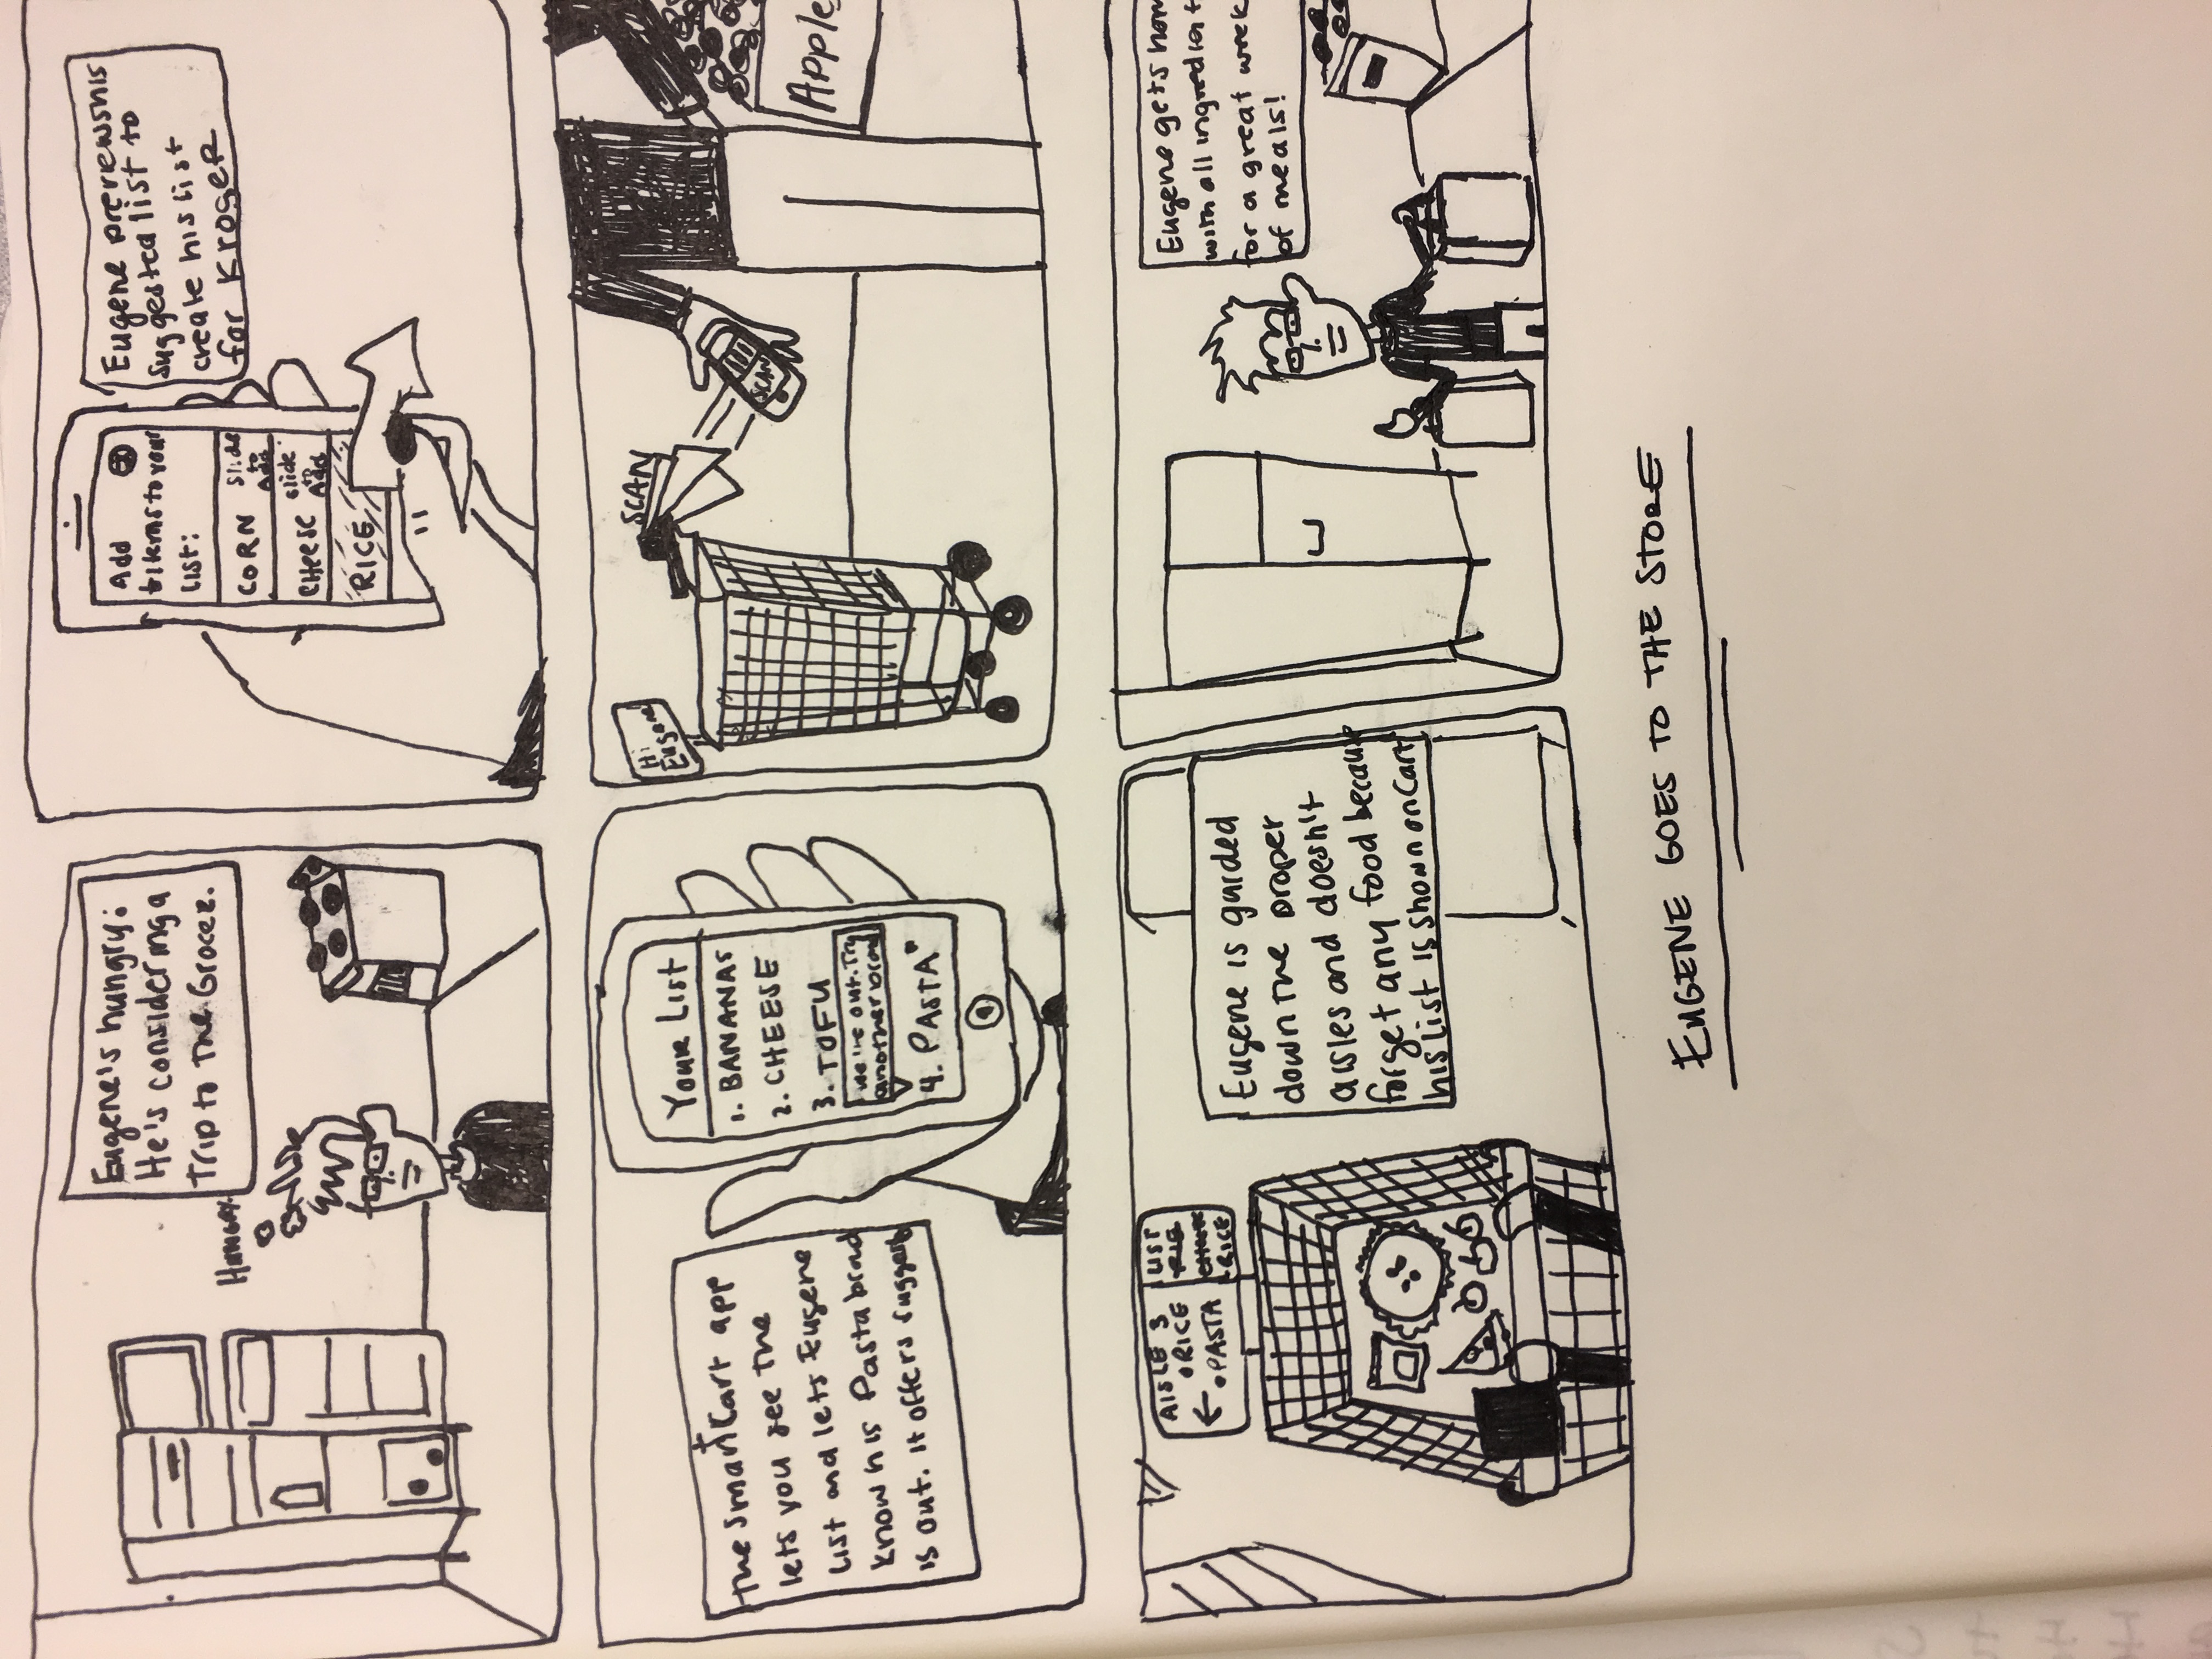 Eugene's hungry:
He's considering a
Trip to The Grocer.
HUNGRY.
Add
items to your
list:
CORN
slide
to
Add
CHEESE
slide
to
Add
RICE
Eugene previews his
suggested list to
create his list
for Kroger
The SmartCart app
lets you see the
list and lets Eugene
know his Pasta brad
is out. It offers suggests
Your List
1. BANANAS
2. CHEESE
3. TOFU
We're out. Try
another brad
4. PASTA
Hi
Eugene
SCAN
SCAN
Apple
AISLE 3
• RICE
← • PASTA
LIST
RICE
Eugene is guided
down the proper
aisles and doesn't
forget any food because
his list is shown on Cart
Eugene gets hom
with all ingredient
for a great week
of meals!
EUGENE GOES TO THE STORE